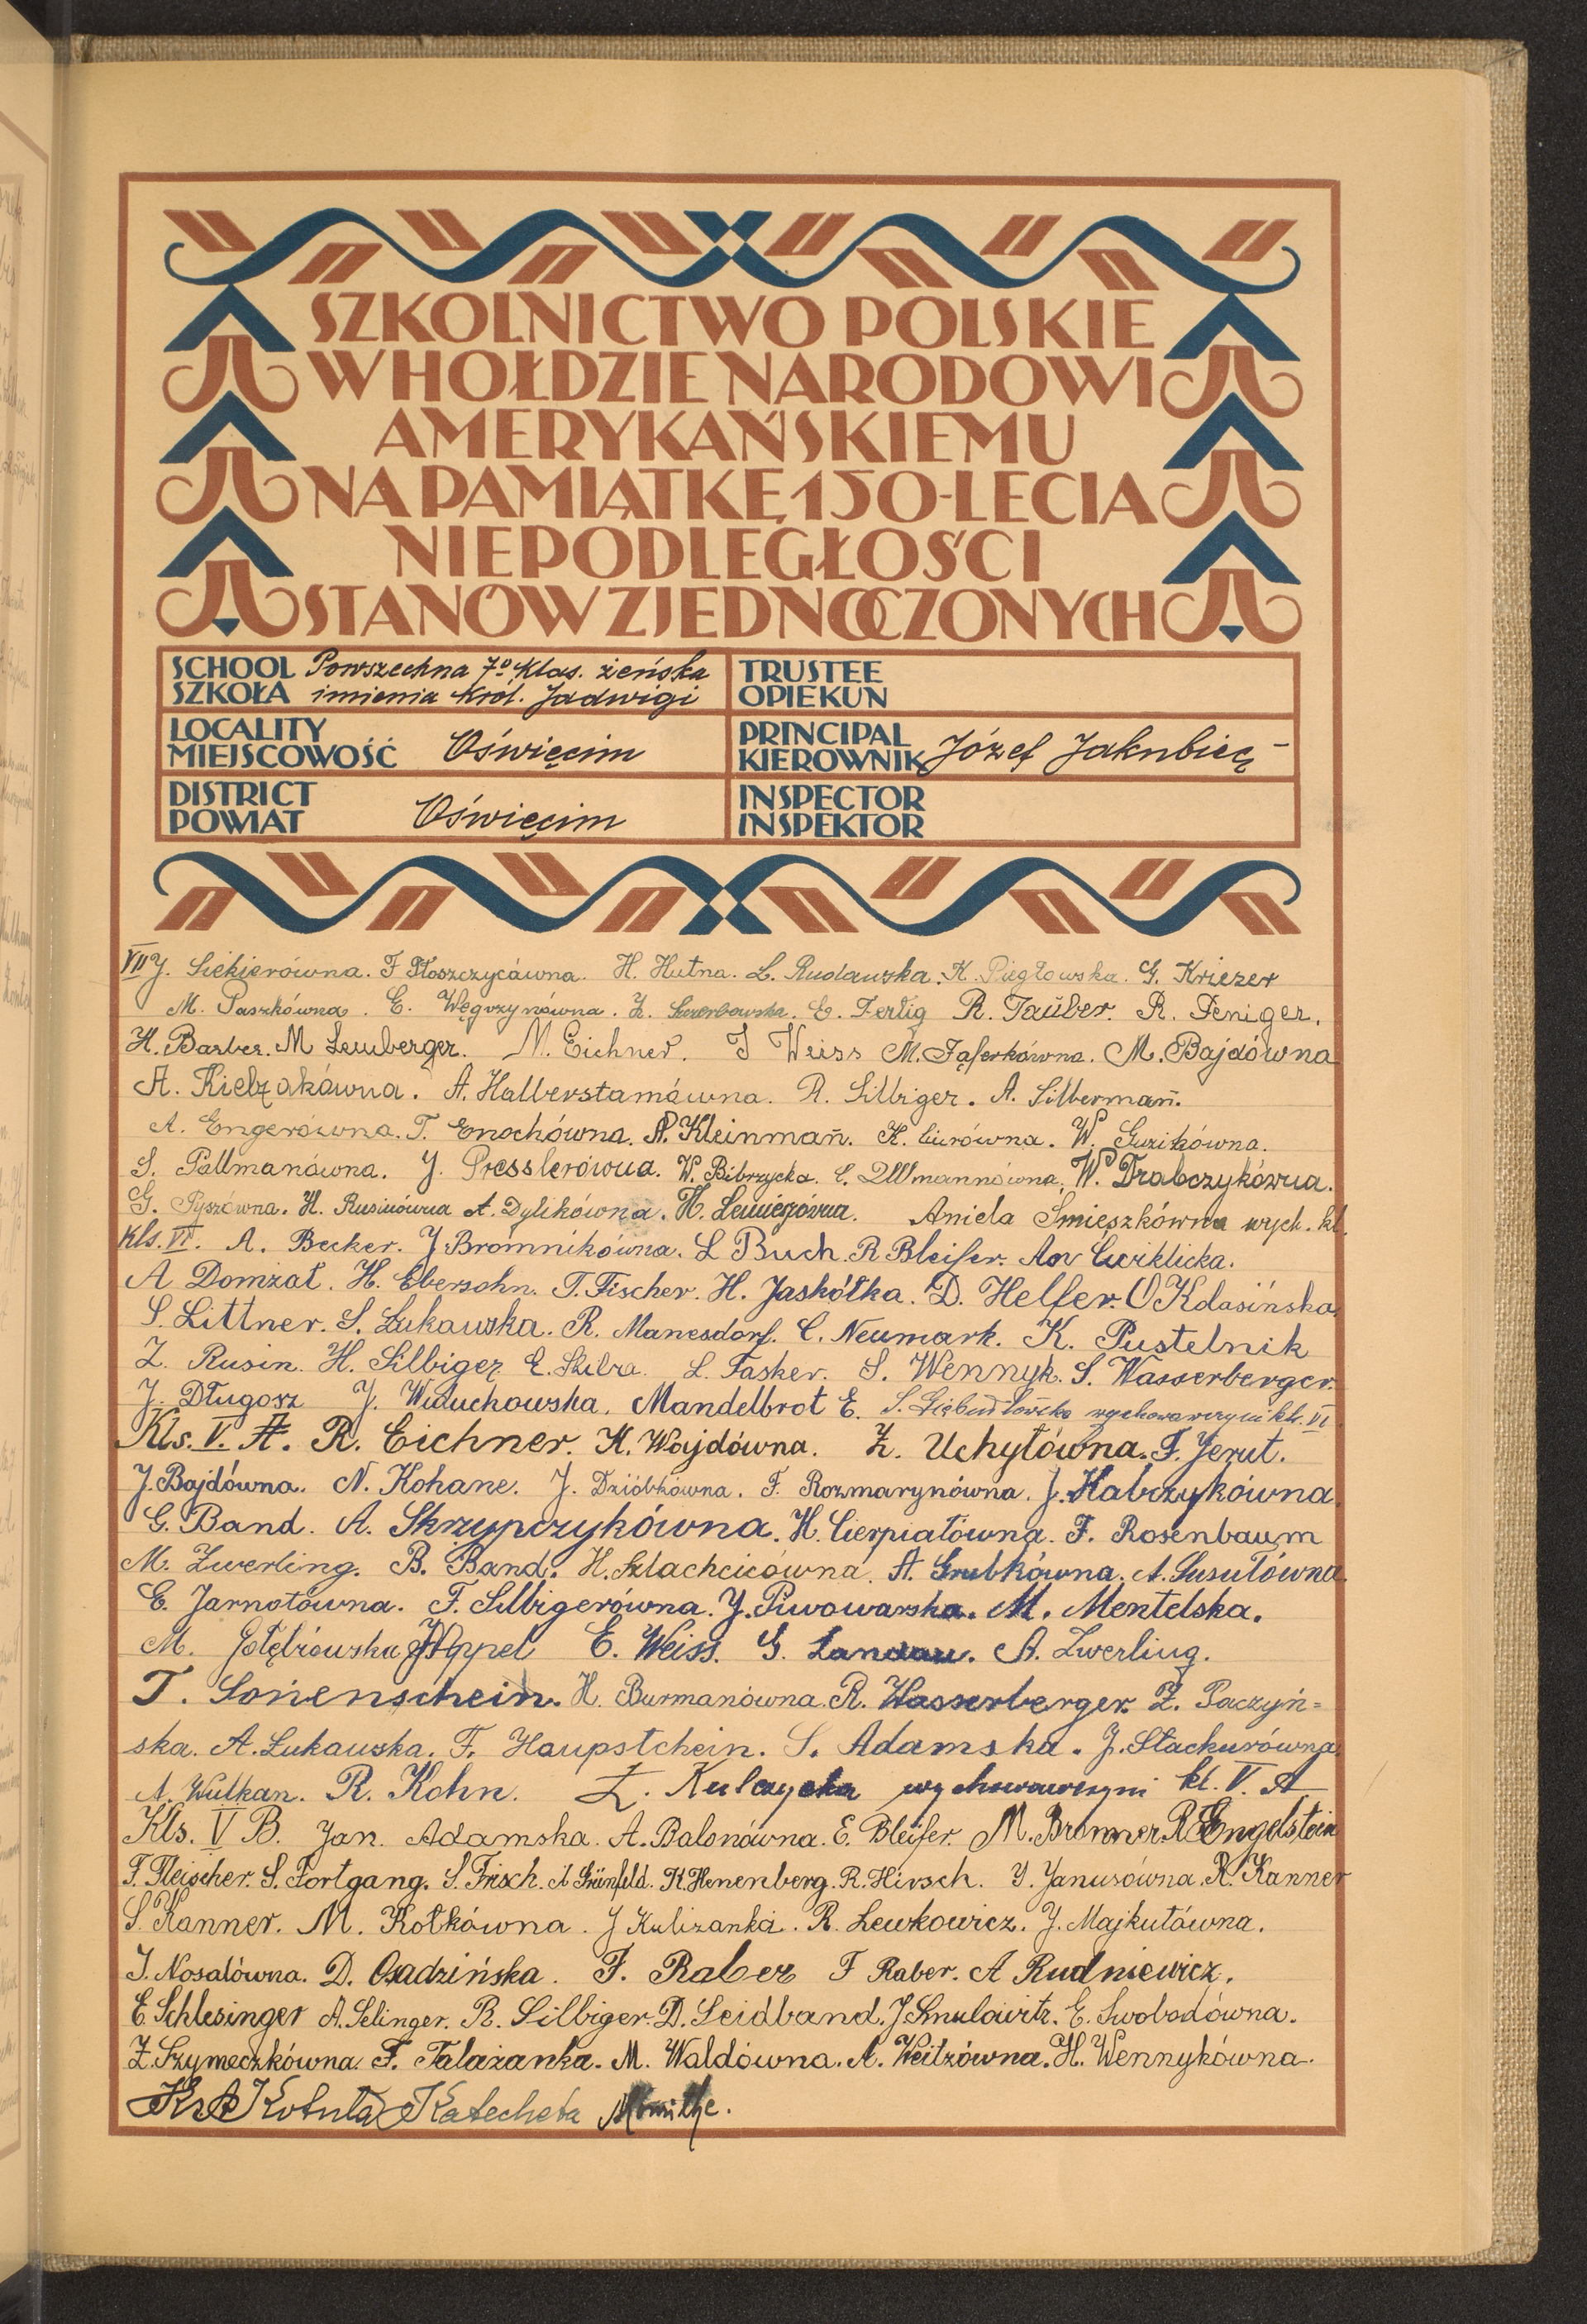 SZKOLNICTWO POLSKIE
W HOŁDZIE NARODOWI
AMERYKAŃSKIEMU
NA PAMIĄTKĘ 150-LECIA
NIEPODLEGŁOŚCI
STANÓW ZJEDNOCZONYCH
SCHOOL Powszechna 7º klas. żeńska
SZKOŁA imienia Król. Jadwigi
TRUSTEE
OPIEKUN
LOCALITY
MIEJSCOWOŚĆ Oświęcim
PRINCIPAL
KIEROWNIK Józef Jakubiec
DISTRICT
POWIAT Oświęcim
INSPECTOR
INSPEKTOR
VII J. Siekierówna. F Płoszczycówna. H. Hutna. L. Rudawska. K. Piegłowska. G. Kriezer
M. Paszkówna. E. Węgrzynówna. E. Fertig R. Taüber. R. Feniger.
H. Barber. M Lemberger. M. Eichner. J Weiss M. Fąferkówna. M. Bajdówna
A. Kielzakówna. A. Halberstamówna. R. Silbiger. A. Silbermañ.
A. Engerówna. T. Enochówna. A. Kleinmañ. K. Ciurówna. W. Guzikówna.
S. Pallmanówna. J. Presslerówna. W. Bibrzycka. E. Ullmannówna. W. Drabczykówna.
G. Pyszówna. H. Rusinówna A. Dylikówna. Aniela Śmieszkówna wych. kl.
Kls. VI. A. Becker. J. Bromnikówna. L Buch. R Bleifer. Ćwiklicka.
A Domżał. H. Ebersohn. T. Fischer. H. Jaskółka. D. Helfer. O Kdasińska.
S. Littner. S. Łukawska. R. Manesdorf. C. Neumark. K. Pustelnik
Z. Rusin. H. Silbiger E. Skiba. L. Tasker. S. Wennyk. S. Wasserberger.
J. Długosz J. Widuchowska. Mandelbrot E. wychowawczyni kl. VI
Kls. V. A. R. Eichner. K. Wajdówna. Z. Uchyłówna. F. Jerut.
J. Bajdówna. N. Kohane. J. Dzióbkówna. F. Rozmarynówna. J. Habczykówna.
G. Band. A. Skrzypczykówna. H. Cierpiałówna. F. Rosenbaum
M. Zwerling. B. Band. H. Szlachcicówna. A. Grubkówna. A. Susułówna.
E. Jarnotówna. F. Silbigerówna. J. Piwowarska. M. Mentelska.
M. Gołębiowska Appel E. Weiss. G. Landau. A. Zwerling.
T. Sonenschein. H. Burmanówna. R. Wasserberger. Z. Paczyń=
ska. A. Łukawska. F. Haupstchein. S. Adamska. J. Stachurówna.
A. Wulkan. R. Kohn. Z. Kulczycka wychowawczyni kl. V. A
Kls. V B. Jan. Adamska. A. Balonówna. E. Bleifer. M. Bronner. R. Engelstein
F. Fleischer. S. Fortgang. S. Frisch. A Grünfeld. K. Henenberg. R. Hirsch. J. Janusówna. R. Kanner
S. Kanner. M. Kotkówna. J Kulizanka. R. Lewkowicz. J. Majkutówna.
J. Nosalówna. D. Osadzińska. F. Raber F Raber. A Rudniewicz.
E. Schlesinger A. Selinger. R. Silbiger. D. Seidband. J. Smulowitz. E. Swobodówna.
Z. Szymeczkówna F. Talażanka. M. Waldówna. A. Weitzówna. H. Wennykówna.
Ks A Kotula Katecheta